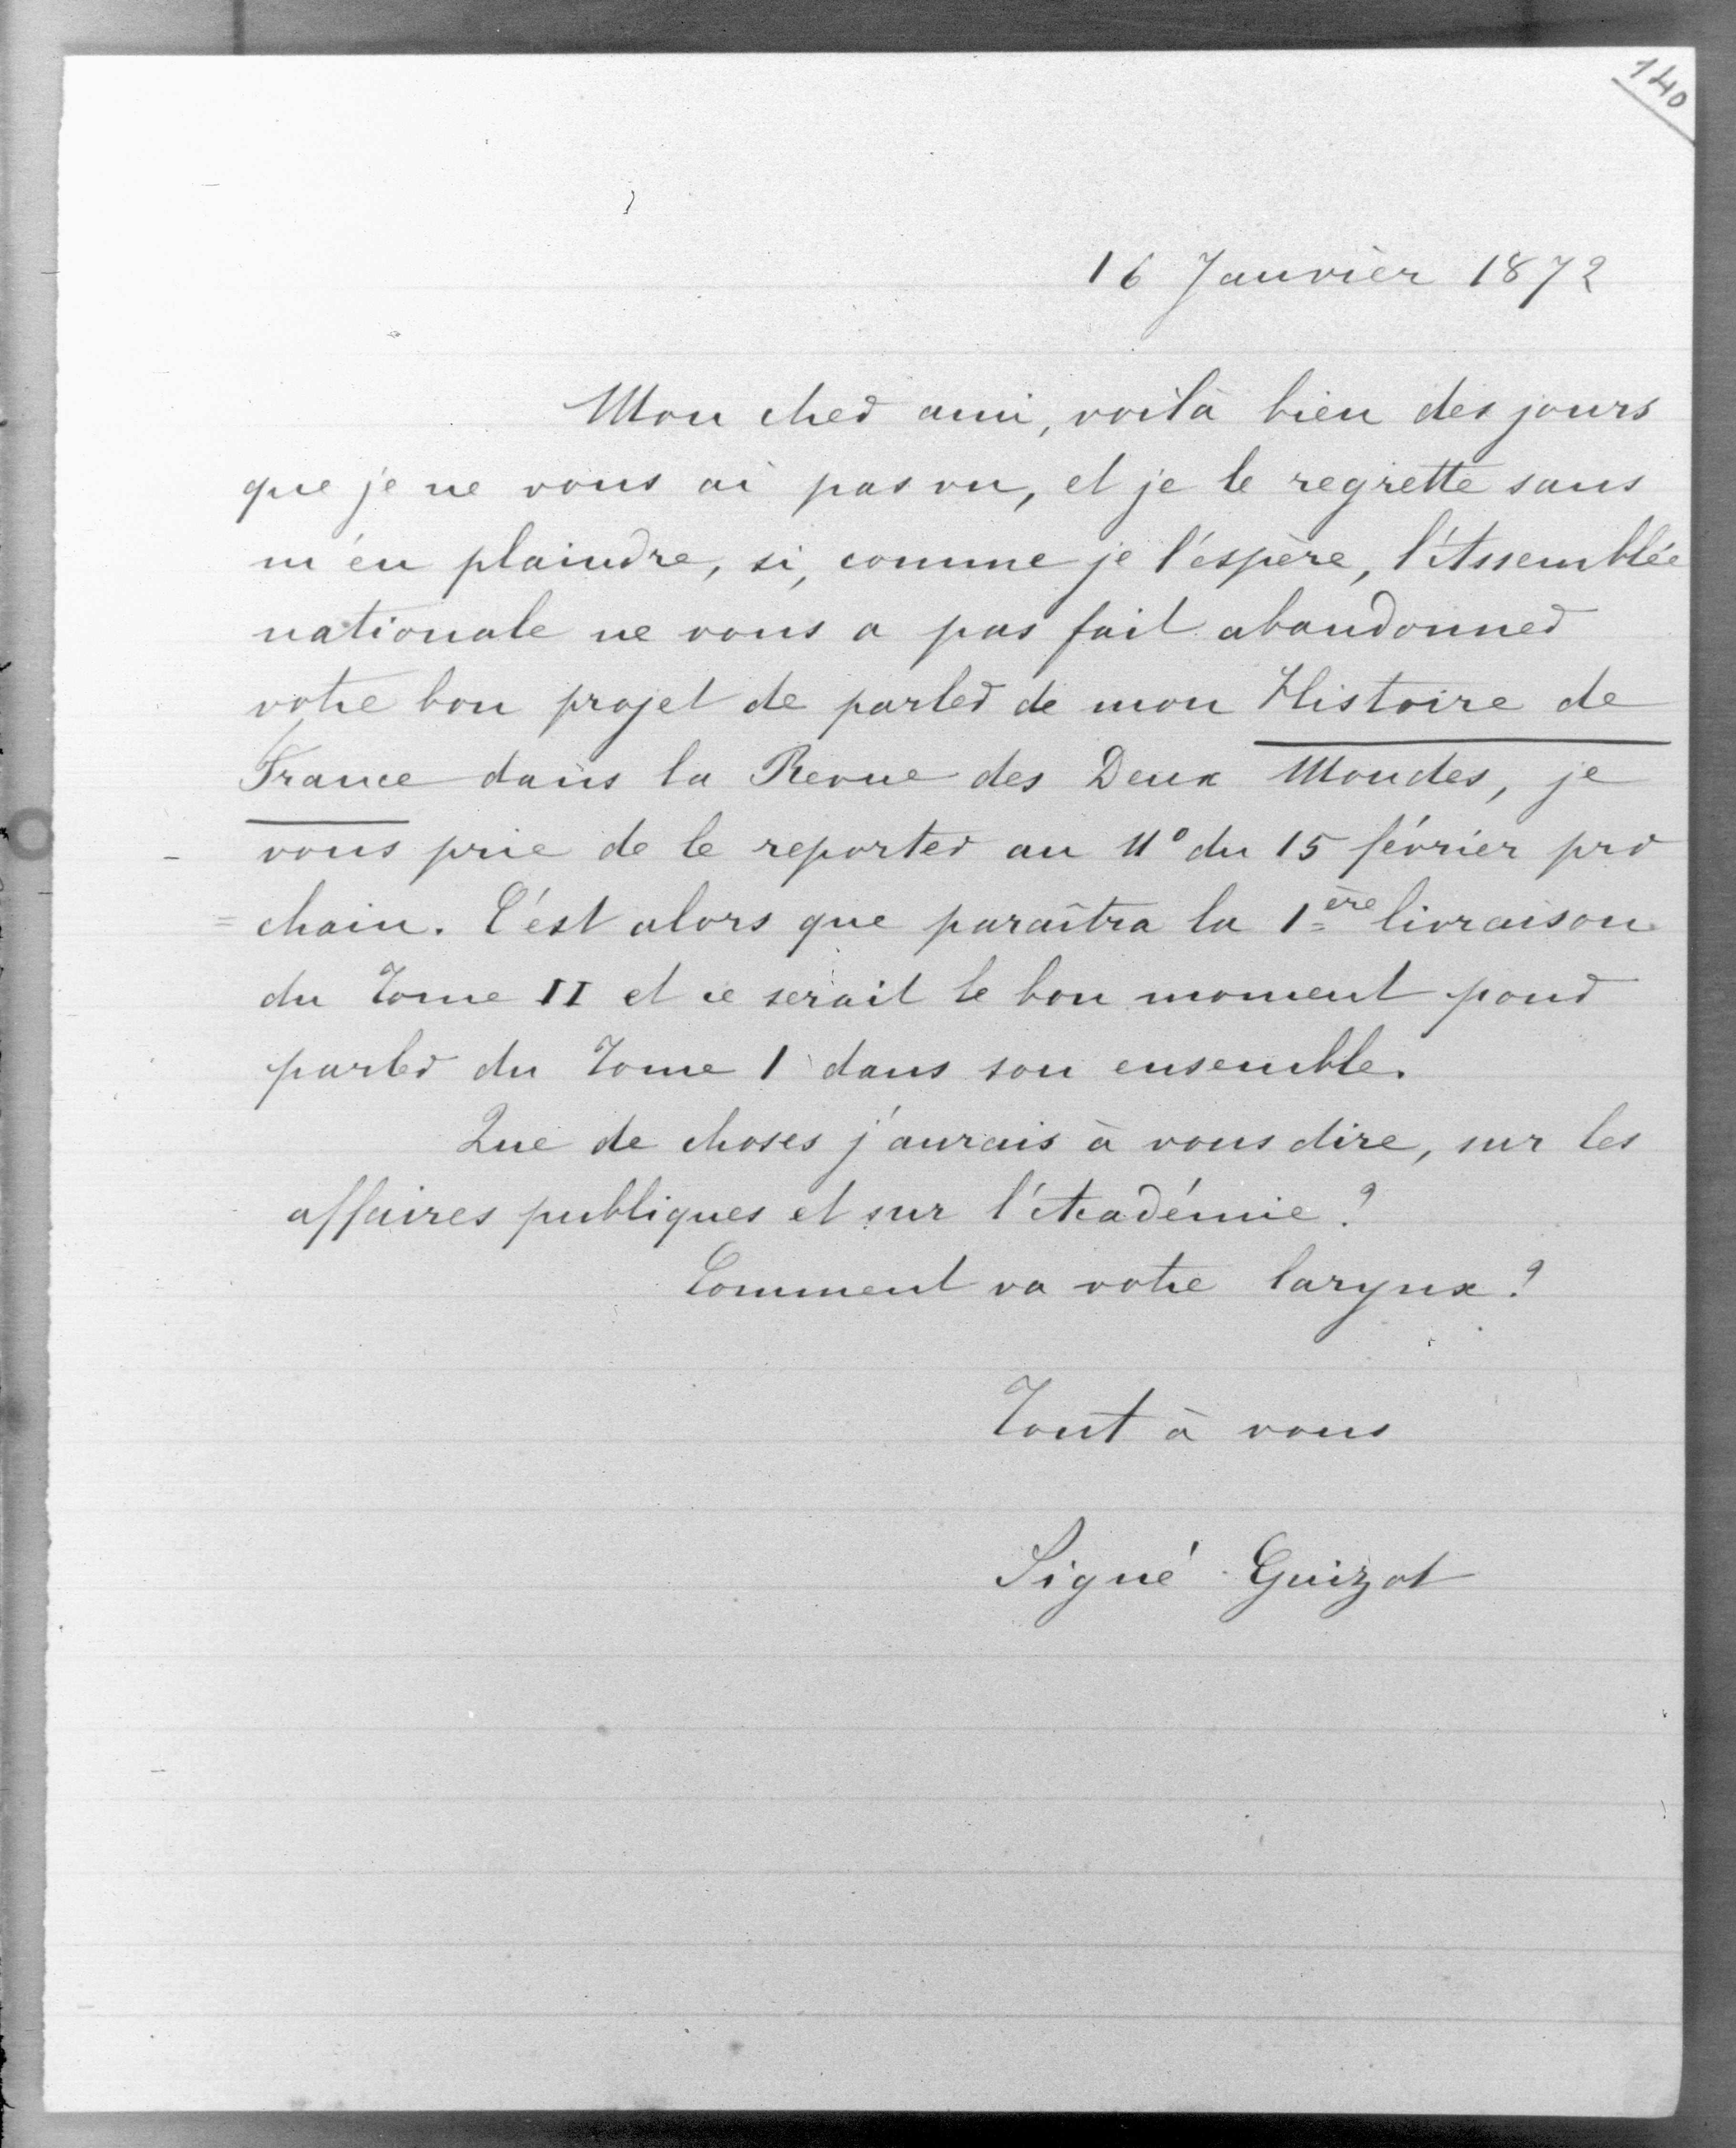 140
16 Janvier 1872
Mon cher ami, voilà bien des jours
que je ne vous ai pas vu, et je le regrette sans
m'en plaindre, si, comme je l'espère, l'Assemblée
nationale ne vous a pas fait abandonner
votre bon projet de parler de mon Histoire de
France dans la Revue des Deux Mondes, je
vous prie de le reporter au N° du 15 février pro
=chain. C'est alors que paraîtra la 1ère livraison
du Tome II et ce serait le bon moment pour
parler du Tome I dans son ensemble.
Que de choses j'aurais à vous dire, sur les
affaires publiques et sur l'Académie?
Comment va votre larynx?
Tout à vous
Signé Guizot